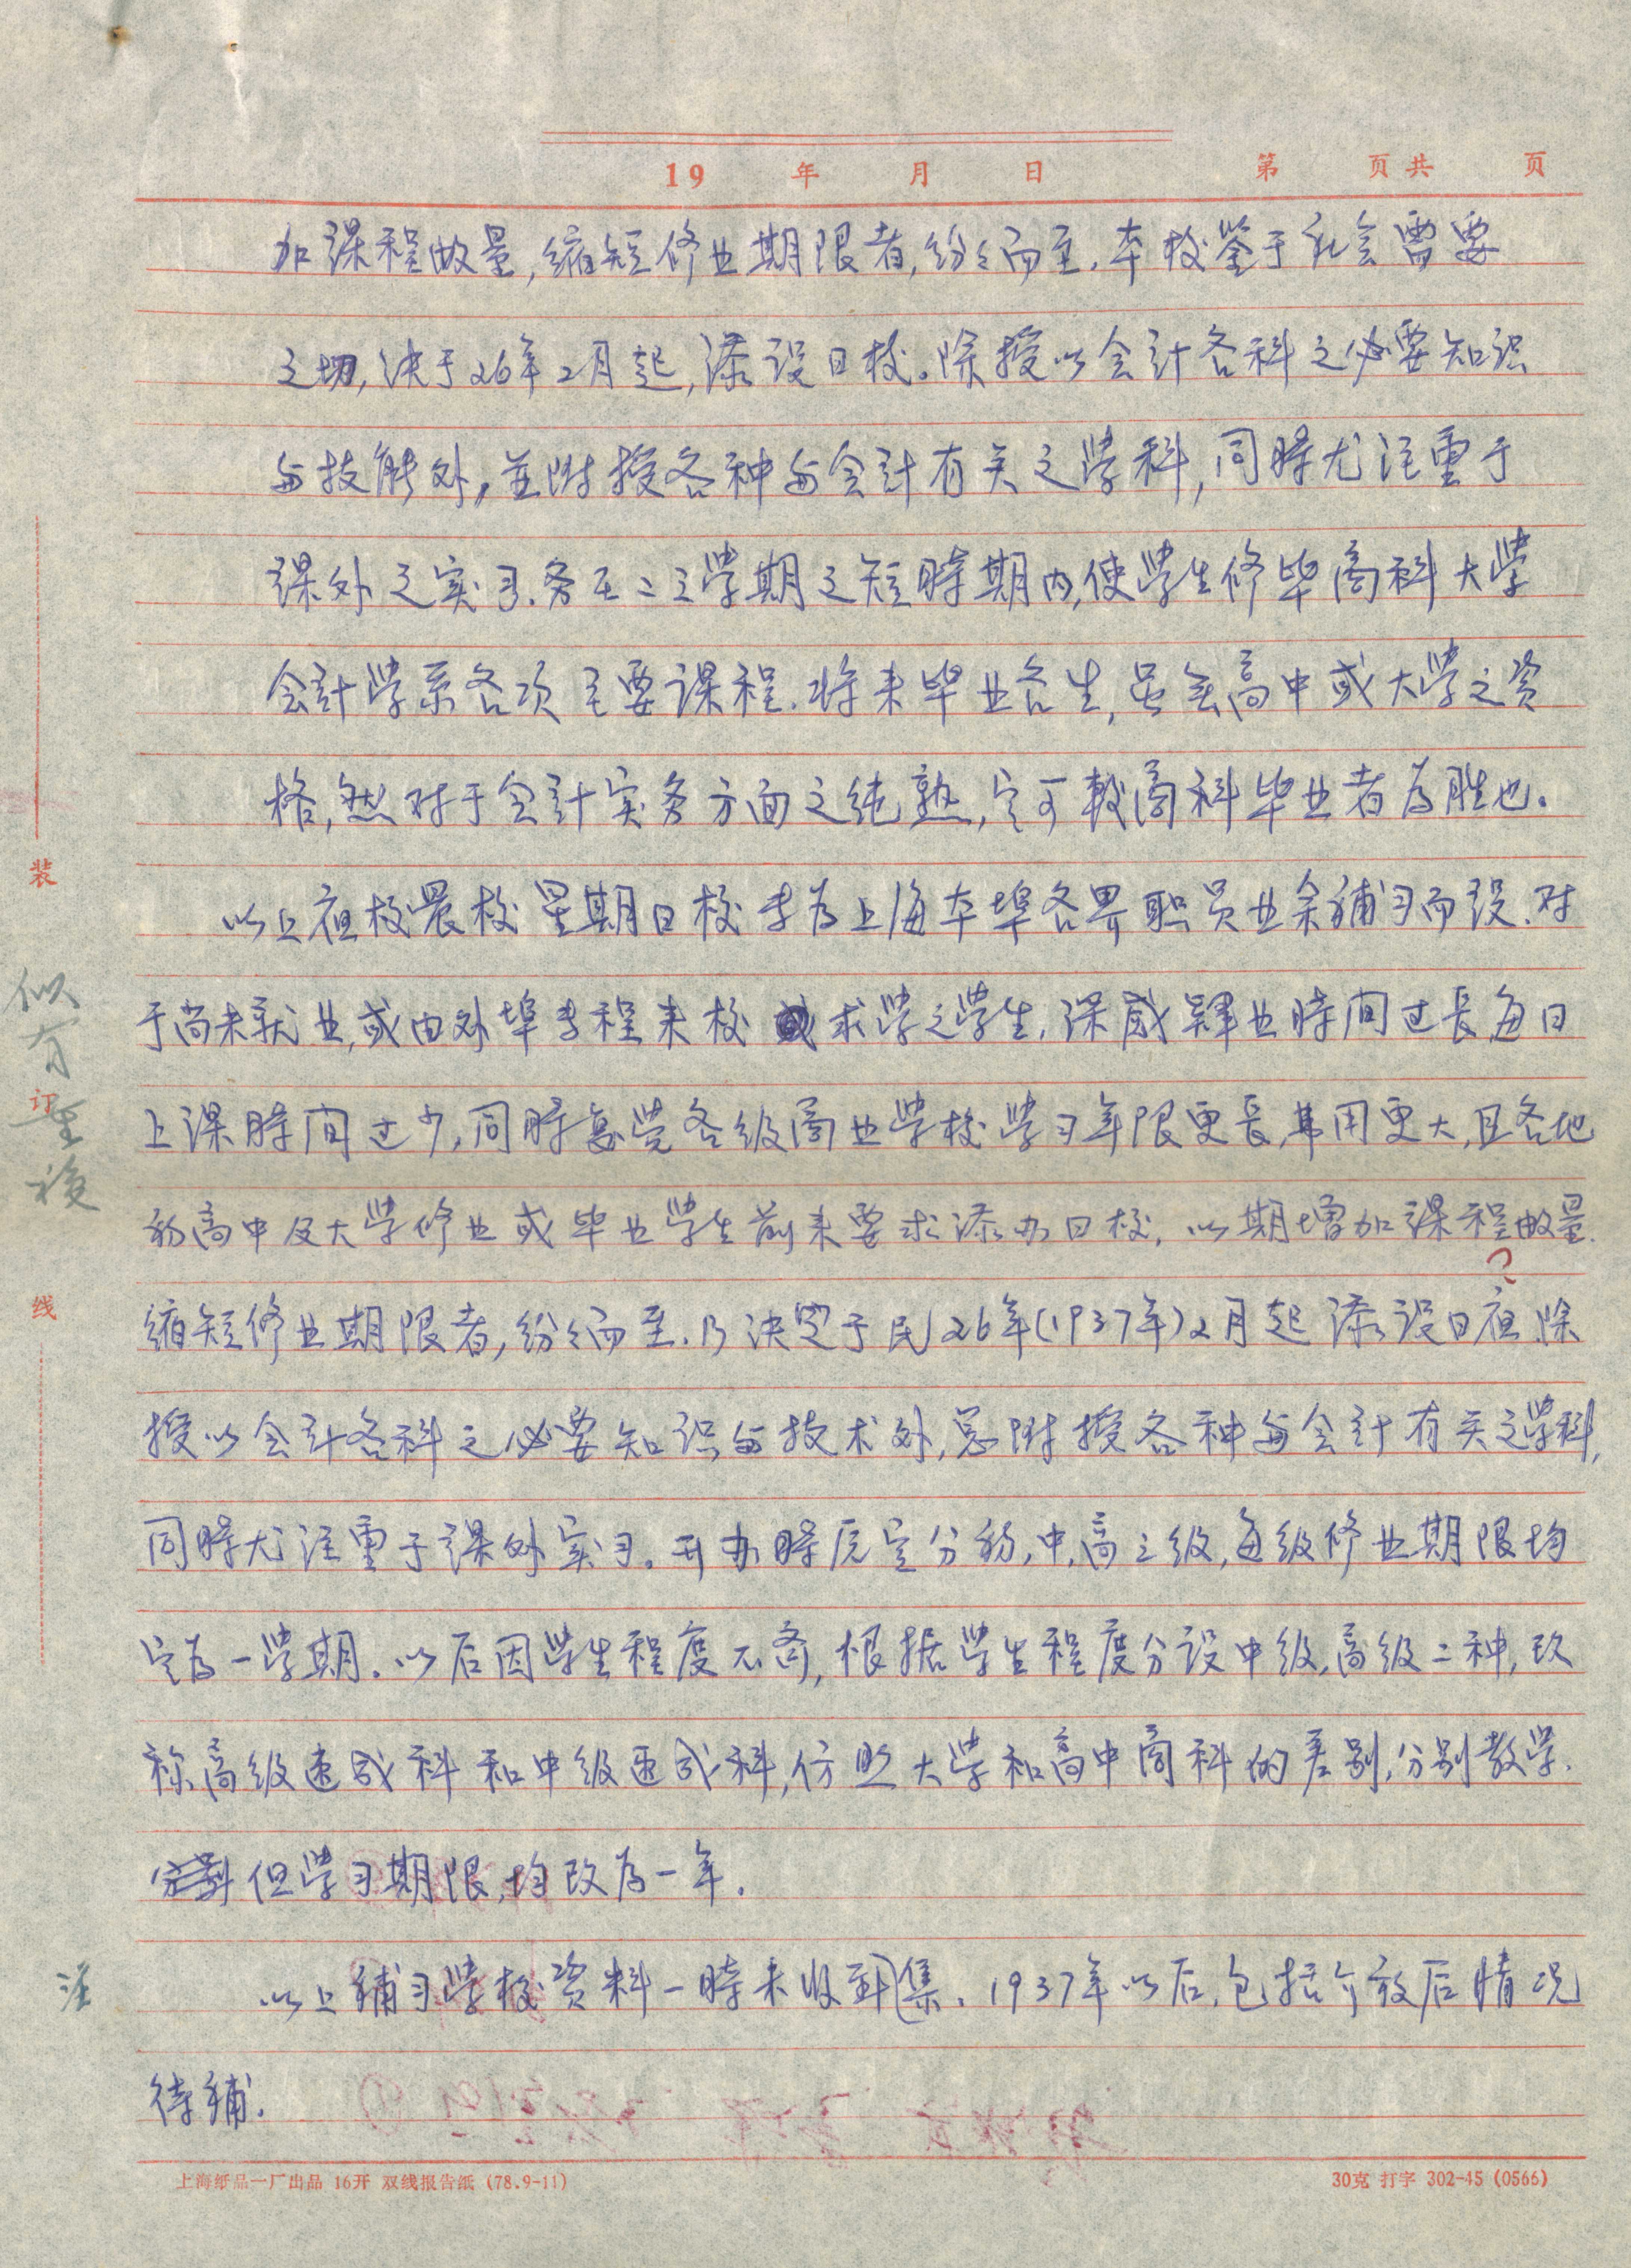 19 年 月 日 第 页共 页
加课程数量,缩短修业期限者,纷纷而至.本校鉴于社会需要
之切,决于26年2月起,添设日校。除授以会计各科之必要知识
与技能外,並附授各种与会计有关之学科,同時尤注重于
课外之实习.务在二三学期之短時期内,使学生修毕商科大学
会计学系各项主要课程.将来毕业各生,虽无高中或大学之资
格,然对于会计实务方面之纯熟,定可較商科毕业者为胜也。
以上夜校晨校星期日校专为上海本埠各界职员业余補习而设.对
于尚未就业,或由外埠专程来校求学之学生,深感肄业時间过长,每日
上课時间过少,同時感觉各级商业学校学习年限更长,费用更大,且各地
初高中及大学修业或毕业学生前来要求添办日校,以期增加课程数量.
缩短修业期限者,纷纷而至.乃决定于民26年(1937年)2月起添设日夜.除
?
授以会计各科之必要知识与技术外,另附授各种与会计有关之学科,
同時尤注重于课外实习.开办時原定分初,中,高三级,每级修业期限均
定为一学期.以后因学生程度不齐,根据学生程度分设中级,高级二种,改
称高级速成科和中级速成科,仿照大学和高中商科的差别,分别教学.
但学习期限,均改为一年.
以上補习学校资料一時未收到集.1937年以后,包括介放后情况
待補.
似有重複
注
装
订
线
上海纸品一厂出品 16开 双线报告纸 (78.9-11)
30克 打字 302-45 (0566)